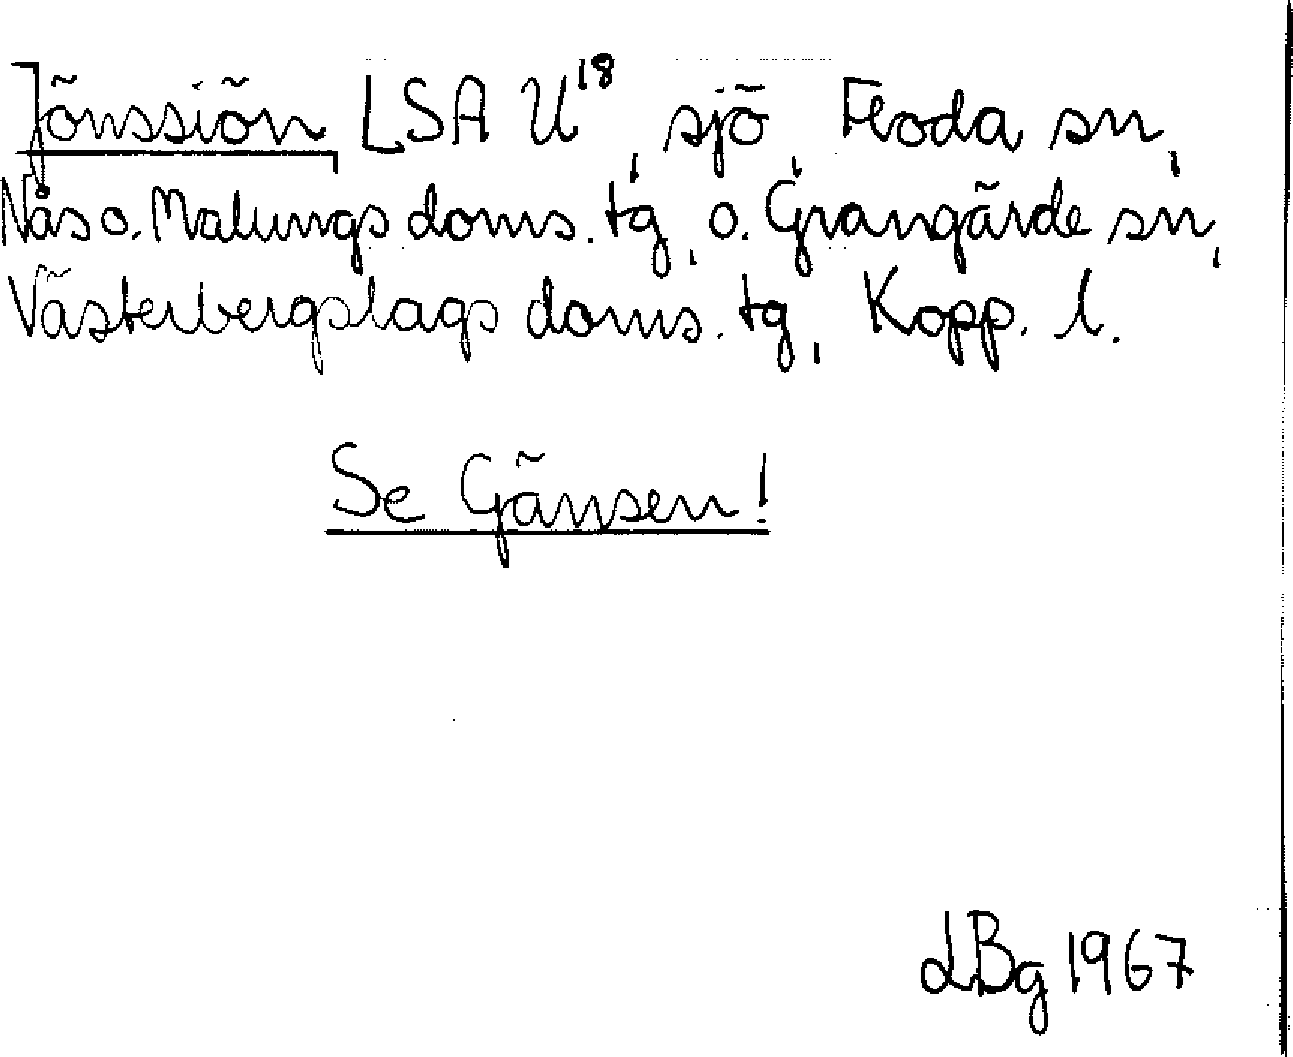 Jönssiön LSA U18, sjö, Floda sn,
Nås o. Malungs doms. tg, o. Grangärde sn,
Västerbergslags doms. tg, Kopp. l.
Se Gänsen!
LBg 1967